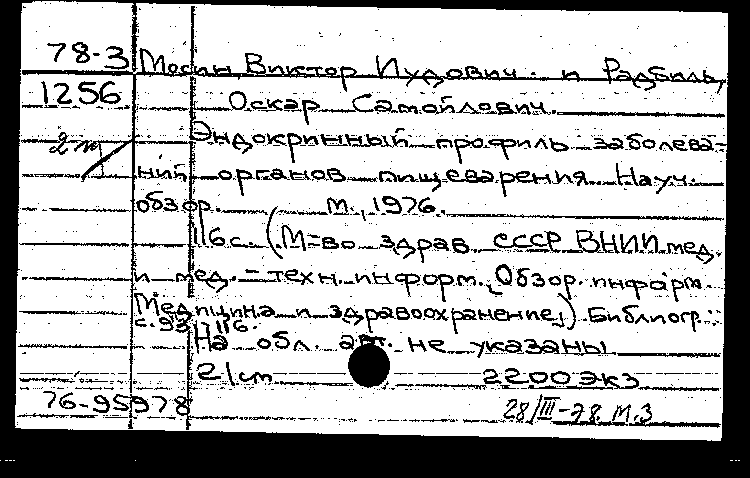 78-3 Мосин, Виктор Иудович. и Радбиль,
1256 Оскар Самойлович.
2 Эндокринный профиль заболева-
ний органов пищеварения. Науч.
обзор. М., 1976.
116 с. (М-во здрав СССР ВНИИ мед.
и мед.-техн. информ., Обзор. информ.
Медицина и здравоохранение) Библиогр.:
с. 93-116.
На обл. авт. не указаны
2200 экз
76-95978 28/III-78. М.З